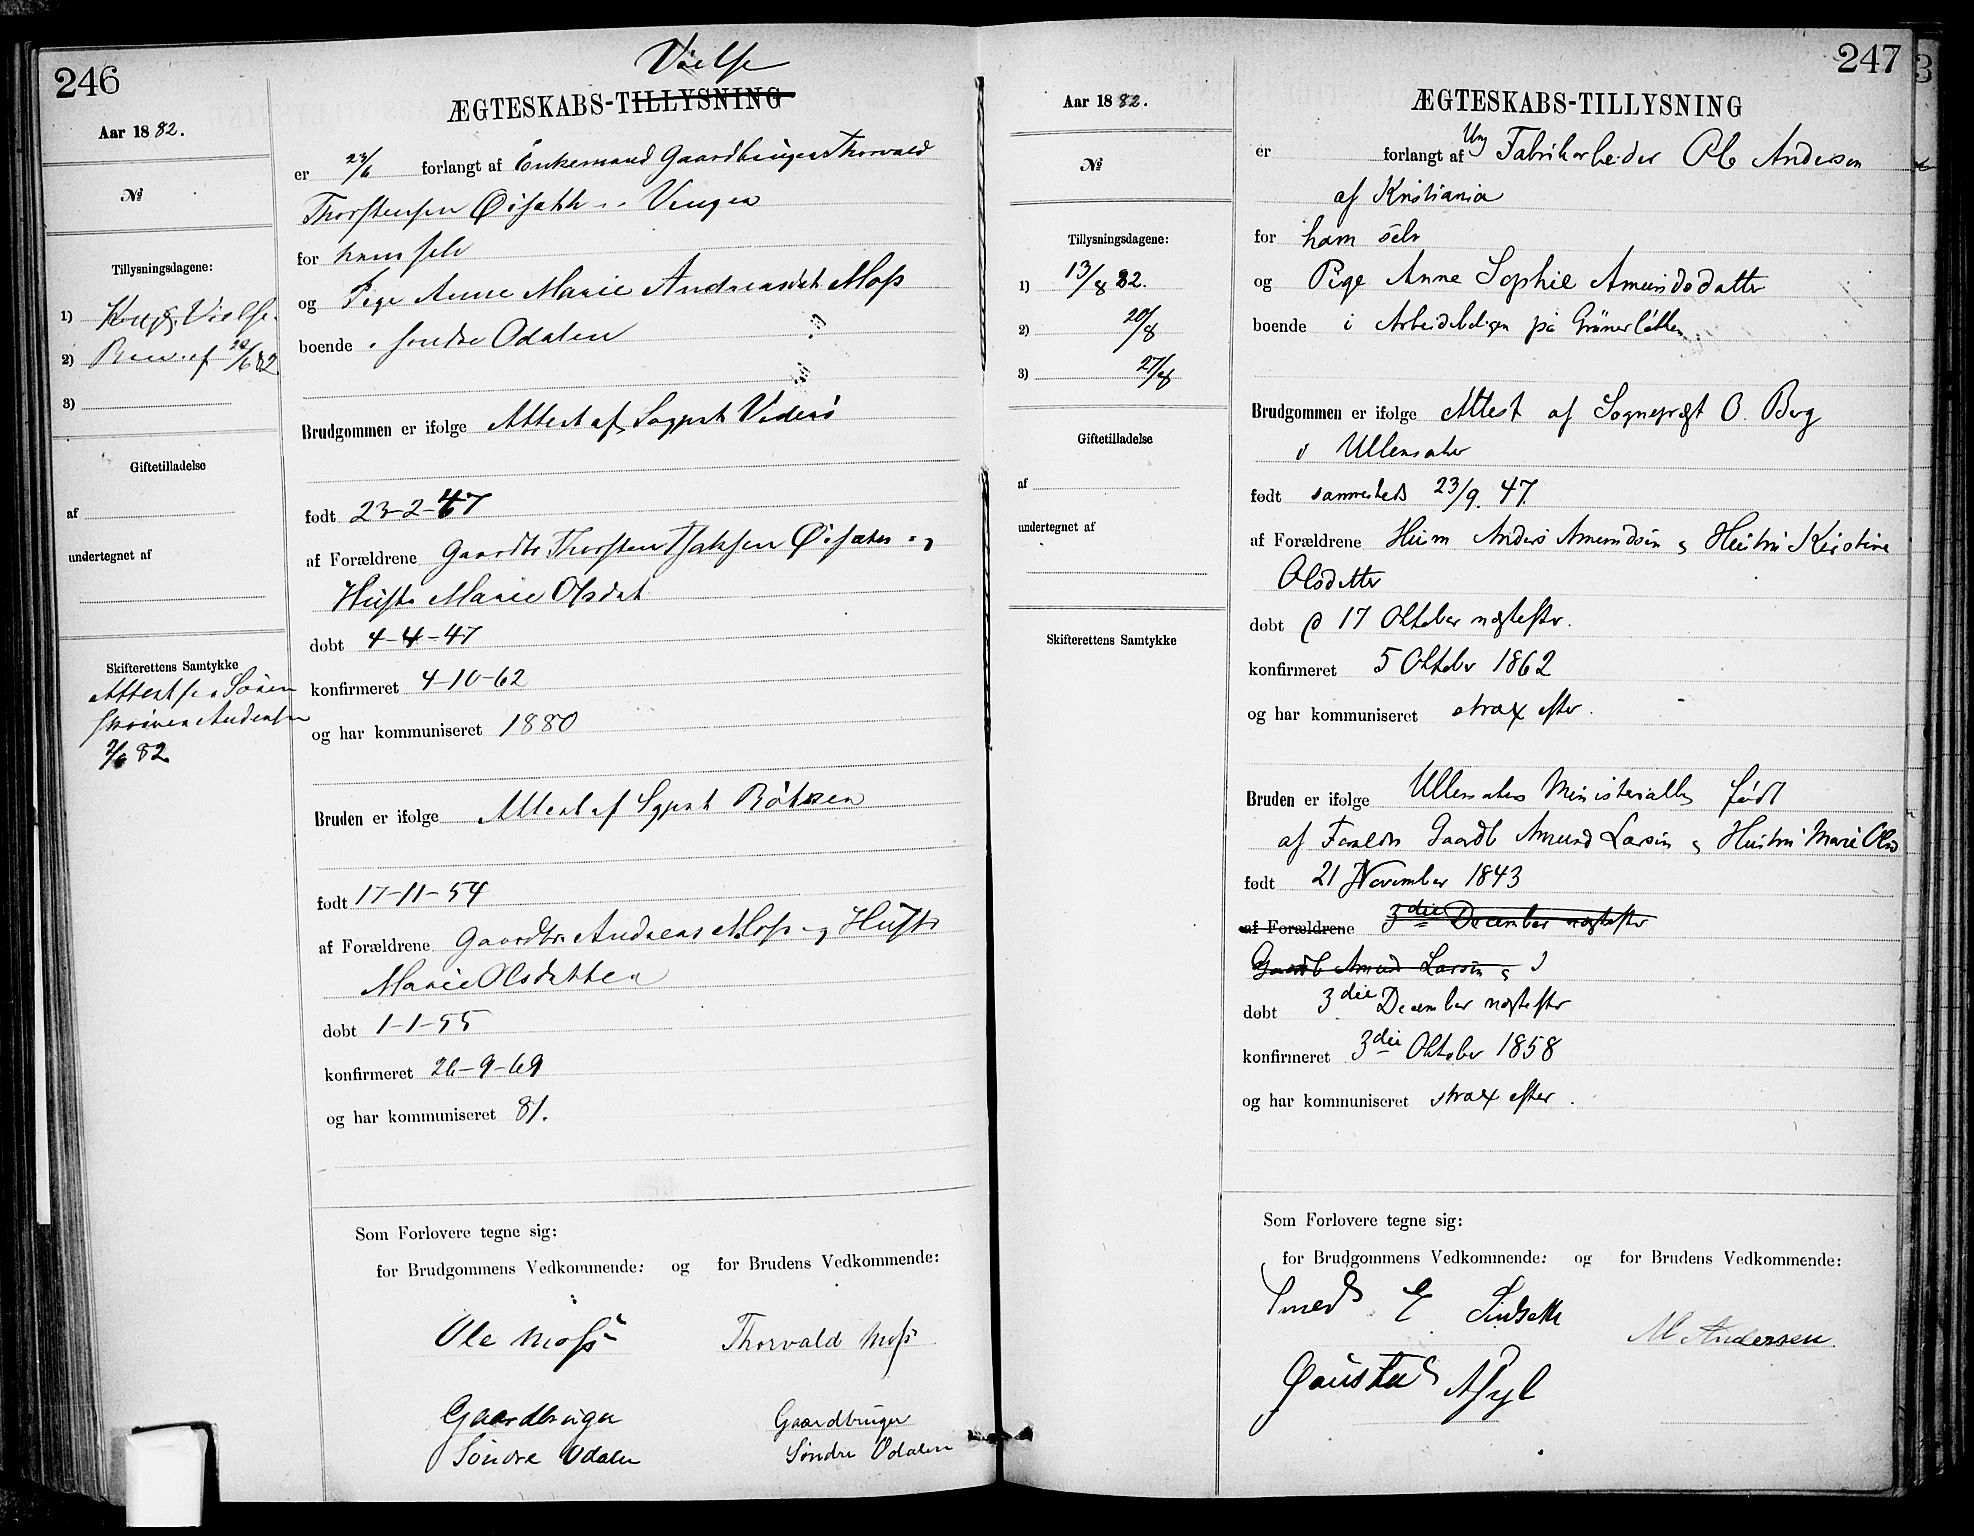 246
Aar 1882.
№
Tillysningsdagene:
1) Vielse
2) 82
3)
Giftetilladelse
af
undertegnet af
Skifterettens Samtykke
Attest
82
Vielse
ÆGTESKABS-TILLYSNING
er 23/6 forlangt af Enkemand Gaardbruger Thorvald
Thorstensen Vinger
for ham selv
og Pige Anne Marie Andreasdat Moss
boende i søndre Odalen
Brudgommen er ifølge Attest af Sogpst
født 23-2-47
af Forældrene Gaardbr Thorsten og
Hustr Marie Olsdat
døbt 4-4-47
konfirmeret 4-10-62
og har kommuniseret 1880
Bruden er ifølge Attest af Sgprst
født 17-11-54
af Forældrene Gaardbr Andreas Moss og Hustr
Marie Olsdatter
døbt 1-1-55
konfirmeret 26-9-69
og har kommuniseret 81.
Som Forlovere tegne sig:
for Brudgommens Vedkommende: og for Brudens Vedkommende:
Ole Moss Thorvald Moss
Gaardbruger Gaardbruger
Søndre Odalen Søndre Odalen
247
Aar 1882.
№
Tillysningsdagene:
1) 13/8 82.
2) 20/8
3) 27/8
Giftetilladelse
af
undertegnet af
Skifterettens Samtykke
ÆGTESKABS-TILLYSNING
er forlangt af Ung Fabrikarbeider Ole Andersen
af Kristiania
for ham selv
og Pige Anne Sophie Amundsdatter
boende i Arbeidsboligen på Grünerløkken
Brudgommen er ifølge Attest af Sogneprest O. Berg
i Ullensaker
født sammesteds 23/9 47.
af Forældrene Husm Anders Amundsen og Hustru Kirstine
Olsdatter
døbt 17 Oktober næstefter.
konfirmeret 5 Oktober 1862
og har kommuniseret strax efter.
Bruden er ifølge Ullensakers Ministerialb født
af Foreldr Gaardb Amund Larsen og Hustru Marie Olsd
født 21 November 1843
af Forældrene 3die December næstefter
Gaardb Amund Larsen og
døbt 3die December næstefter
konfirmeret 3die Oktober 1858
og har kommuniseret strax efter.
Som Forlovere tegne sig:
for Brudgommens Vedkommende: og for Brudens Vedkommende:
Smed E M Andersen
Gaustad Asyl